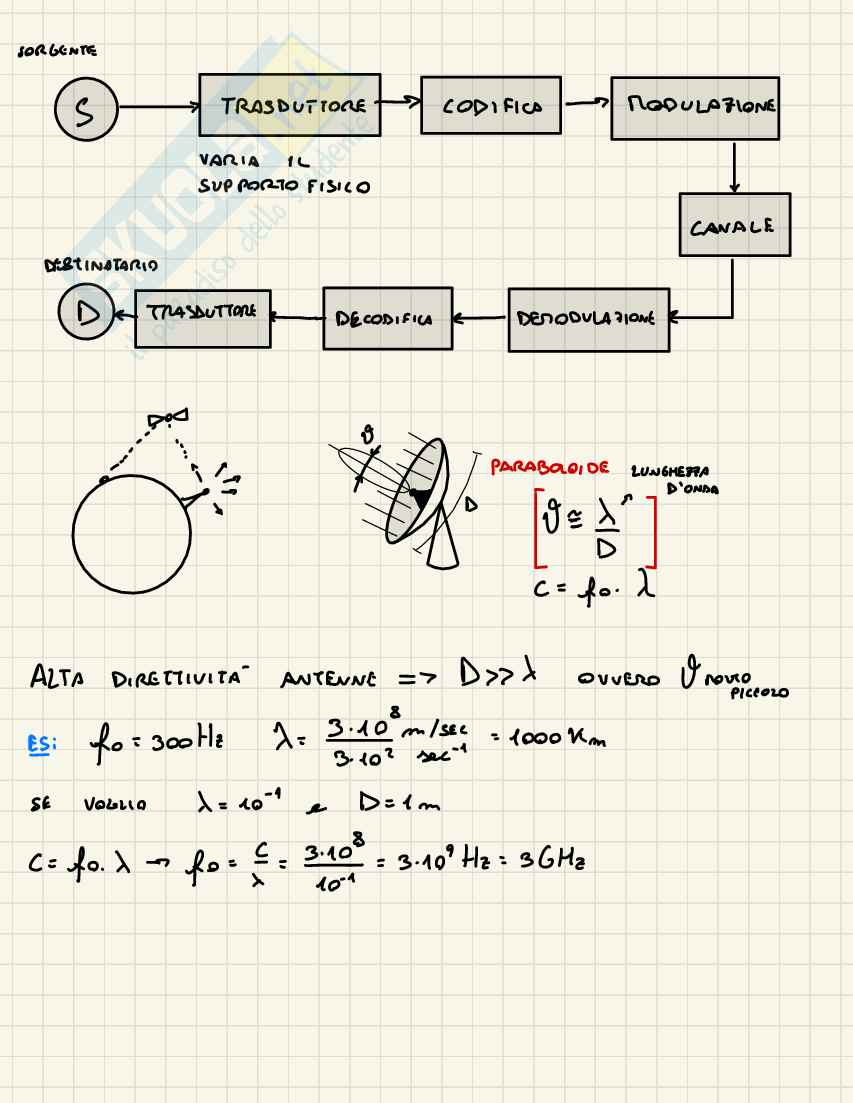 SORGENTE
S
TRASDUTTORE
CODIFICA
MODULAZIONE
VARIA IL
SUPPORTO FISICO
CANALE
DESTINATARIO
D
TRASDUTTORE
DECODIFICA
DEMODULAZIONE
SKUOLA.net
il paradiso dello studente
ϑ
D
PARABOLOIDE
LUNGHEZZA
D'ONDA
[ϑ ≅ λ/D]
C = f₀ · λ
ALTA DIRETTIVITA' ANTENNE => D >> λ OVVERO ϑ MOLTO
PICCOLO
ES: f₀ = 300 Hz λ = 3·10⁸ m/sec / 3·10² sec⁻¹ = 1000 Km
SE VOGLIO λ = 10⁻¹ e D = 1 m
C = f₀ · λ → f₀ = C/λ = 3·10⁸/10⁻¹ = 3·10⁹ Hz = 3 GHz